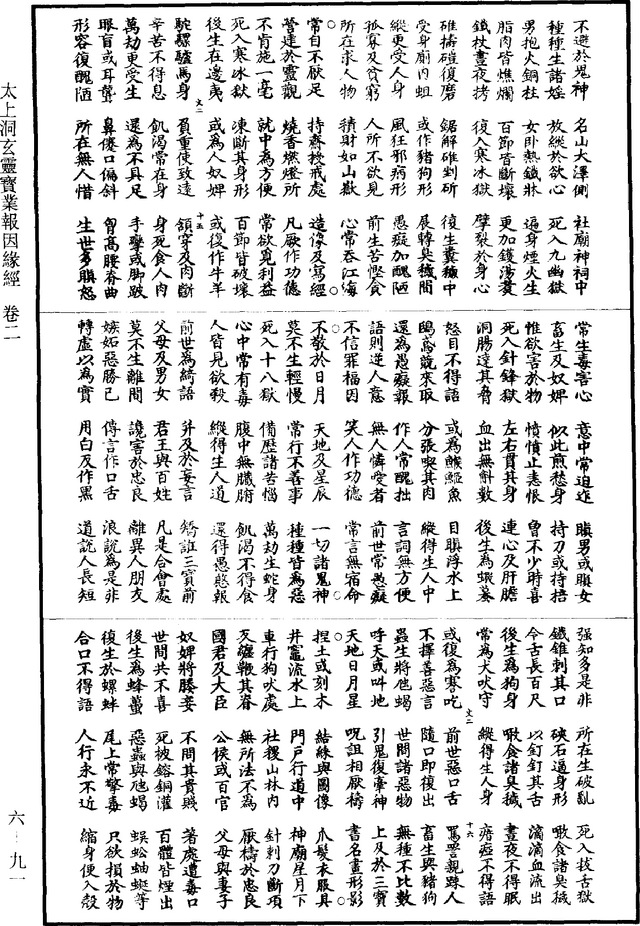 不避於鬼神 名山大澤側 社廟神祠中
種種生諸婬 放縱於欲心 死入九幽獄
男抱火銅柱 女卧熱鐵牀 遍身煙火生
脂肉皆燋爛 百節皆斷壞 更加鑊湯煑
鐵杖晝夜拷 復入寒冰獄 擘裂於身心
碓擣磑復磨 鋸解碓剉斫 復生糞穢中
受身廁內蛆 或作豬狗形 展轉臭穢間
縱更受人身 風狂邪病形 愚癡加醜陋
孤寡及貧窮 人所不欲見 前生苦慳貪
所在求人物 積財如山嶽 心常吞江海
常自不厭足 持齋授戒處 造像及寫經
營建於靈觀 燒香燃燈所 凡厥作功德
不肯施一毫 就中為方便 常欲覓利益
死入寒冰獄 凍斷其身形 百節皆破壞
後生在邊夷 或為人奴婢 或復作牛羊
文二 十五
駝騾驢馬身 負重使致遠 領穿及肉斷
辛苦不得息 飢渴常在身 身死食人肉
萬劫更受生 還為不具足 手攣或脚跛
眼盲或耳聾 鼻僂口偏斜 曾高腰脊曲
形容復醜陋 所在無人惜 生世多瞋怒
常生毒害心 意中常迫迮 瞋男或瞋女
畜生及奴婢 似此煎愁身 持刀或持掊
惟欲害於物 憤憤止恚恨 曾不少時喜
死入針鋒獄 左右貫其身 連心及肝膽
洞腸達其脅 血出無斛數 後生為蝦蟇
怒目不得語 或為鯸鮧魚 目瞋浮水上
鴟烏競來取 分張喫其肉 縱得生人中
還為愚癡報 作人常醜拙 言詞無方便
語則逆人意 無人憐愛者 前世常愚癡
不信罪福因 笑人作功德 常言無宿命
不敬於日月 天地及星辰 一切諸鬼神
莫不生輕慢 常行不善事 種種皆為惡
死入十八獄 備歷諸苦惱 萬劫生蛇身
心中常有毒 腹中無臟腑 飢渴不得食
人皆見欲殺 縱得生人道 還得愚慾報
前世為綺語 并及於妄言 矯誑三寶前
父母及男女 君王與百姓 凡是合會處
莫不生離間 讒害於忠良 離異人朋友
嫉妬惡勝己 傳言作口舌 浪說為是非
轉虛以為實 用白反作黑 道說人長短
強知多是非 所在生破亂 死入拔舌獄
鐵錐刺其口 硤石逼身形 噉食諸臭穢
今舌長百尺 以釘釘其舌 滴滴血流出
後生為狗身 噉食諸臭穢 晝夜不得眠
常為犬吠守 縱得生人身 瘖瘂不得語
文二 十六
或復為謇吃 前世惡口舌 罵詈親踈人
不擇善惡言 隨口即復出 畜生與豬狗
蟲生將虺蝎 世間諸惡物 無種不比數
呼天或叫地 引鬼復牽神 上及於三寶
天地日月星 呪詛相厭禱 書名畫形影
捏土或刻木 結綵與圖像 爪髮衣服具
井竈流水上 門戶行道中 神廟星月下
車行狗吠處 社稷山林內 針刺刀斷項
反鞭其脊 無所法不為 厭禱於忠良
國君及大臣 公侯或百官 父母與妻子
奴婢將媵妾 不問其貴賤 著處遣毒口
世間共不喜 死被鎔銅灌 百體皆煙出
後生為蜂蠆 惡蟲與虺蝎 蜈蚣蚰蜒等
復生於螺蚌 尾上常擎毒 只欲損於物
合口不得語 人行永不近 縮身便入殼
太上洞玄靈寶業報因緣經 卷二
六-九一